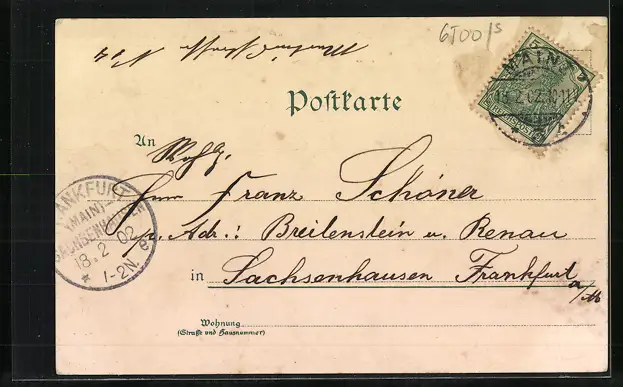 6500/s
Postkarte
MAINZ
13.2.02.10-11
An
Herrn Franz Schöner
p. Adr.: Breitenstein u. Renau
in Sachsenhausen Frankfurt
a/M
FRANKFURT
(MAIN)
SACHSENHAUSEN
13.2 02
* 1-2N.
Wohnung
(Straße und Hausnummer)